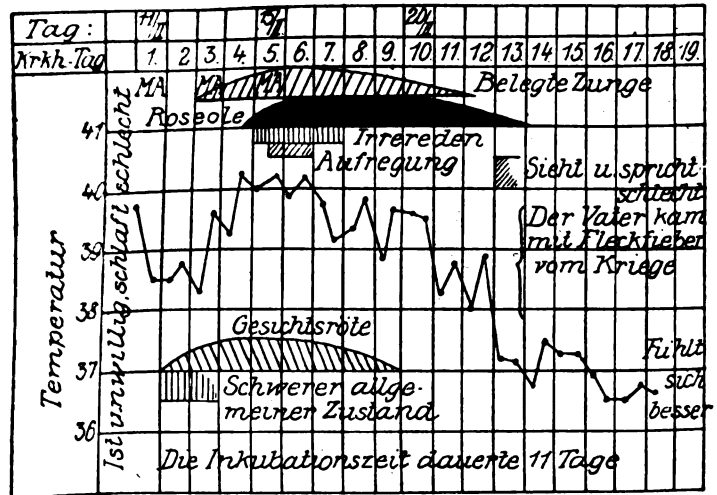 Tag: 11/II 15/II 20/II
Krkh-Tag 1. 2 3. 4. 5. 6. 7. 8. 9. 10. 11. 12. 13. 14. 15. 16. 17. 18. 19.
MA MA MA Belegte Zunge
Roseole
41 Irrereden
Aufregung
Sieht u. spricht
schlecht
40
Der Vater kam
mit Fleckfieber
vom Kriege
39
38
Gesichtsröte
37
Fühlt
sich
besser
Schwerer allge-
meiner Zustand
36
Die Inkubationszeit dauerte 11 Tage
Temperatur
Ist unwillig, schläft schlecht